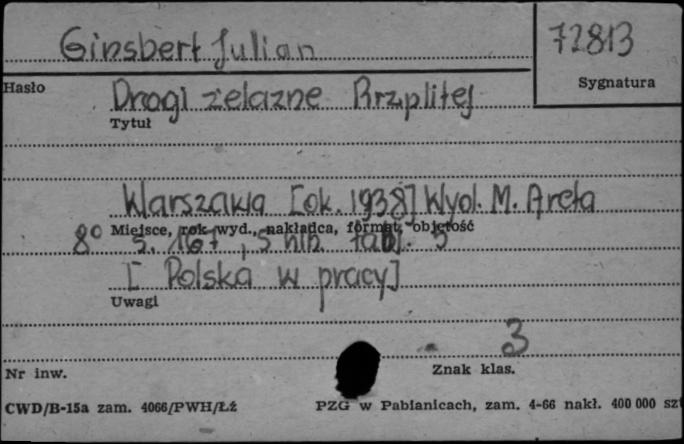 Ginsbert Julian
72813
Hasło
Sygnatura
Drogi żelazne Rrzplitej
Tytuł
Warszawa [ok. 1938] Wyd. M. Arcta
Miejsce, rok wyd., nakładca, format, objętość
8° s. 167, 5 nlb. tabl. 5
[Polska w pracy]
Uwagi
3
Nr inw.
Znak klas.
CWD/B-15a zam. 4066/PWH/Łź
PZG w Pabianicach, zam. 4-66 nakł. 400 000 szt